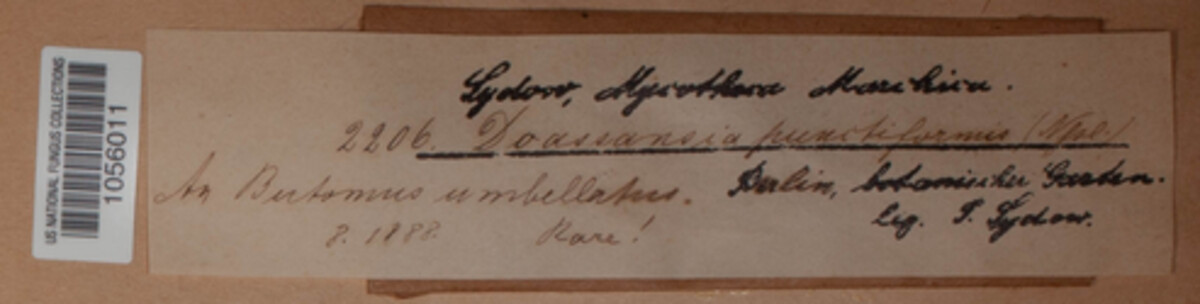 US NATIONAL FUNGUS COLLECTIONS
1056011
Sydow, Mycotheca Marchica.
2206. Doassansia punctiformis
An Butomus umbellatus. Berlin, botanischer Garten.
8. 1888. Rare! leg. P. Sydow.